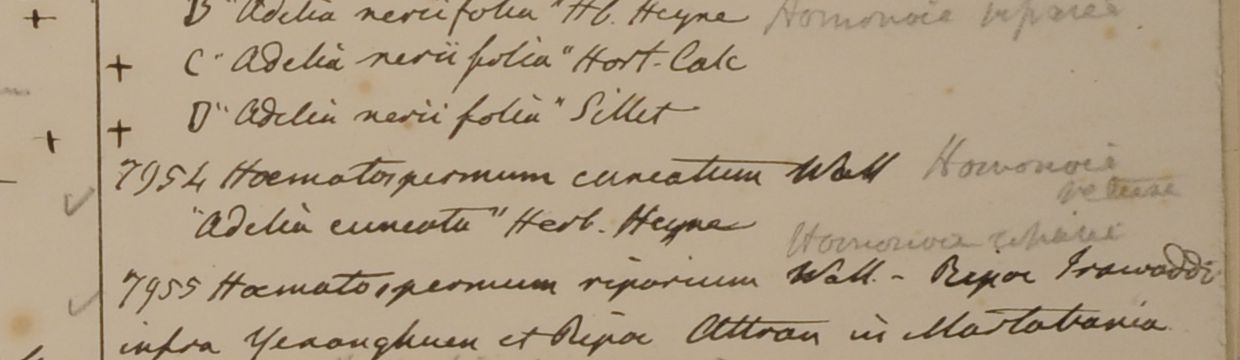 B "Adelia nerii folia" Hb. Heyne Homonoia riparia
+ C "Adelia nerii folia" Hort. Calc
+ D "Adelia nerii folia" Sillet
7954 Hæmatospermum cuneatum Wall Homonoia retusa
"Adelia cuneata" Herb. Heyne
Homonoia riparia
7955 Hæmatospermum riparium Wall. - Ripæ Irawaddi
infra Yenanghuen et Ripæ Attran in Martabania